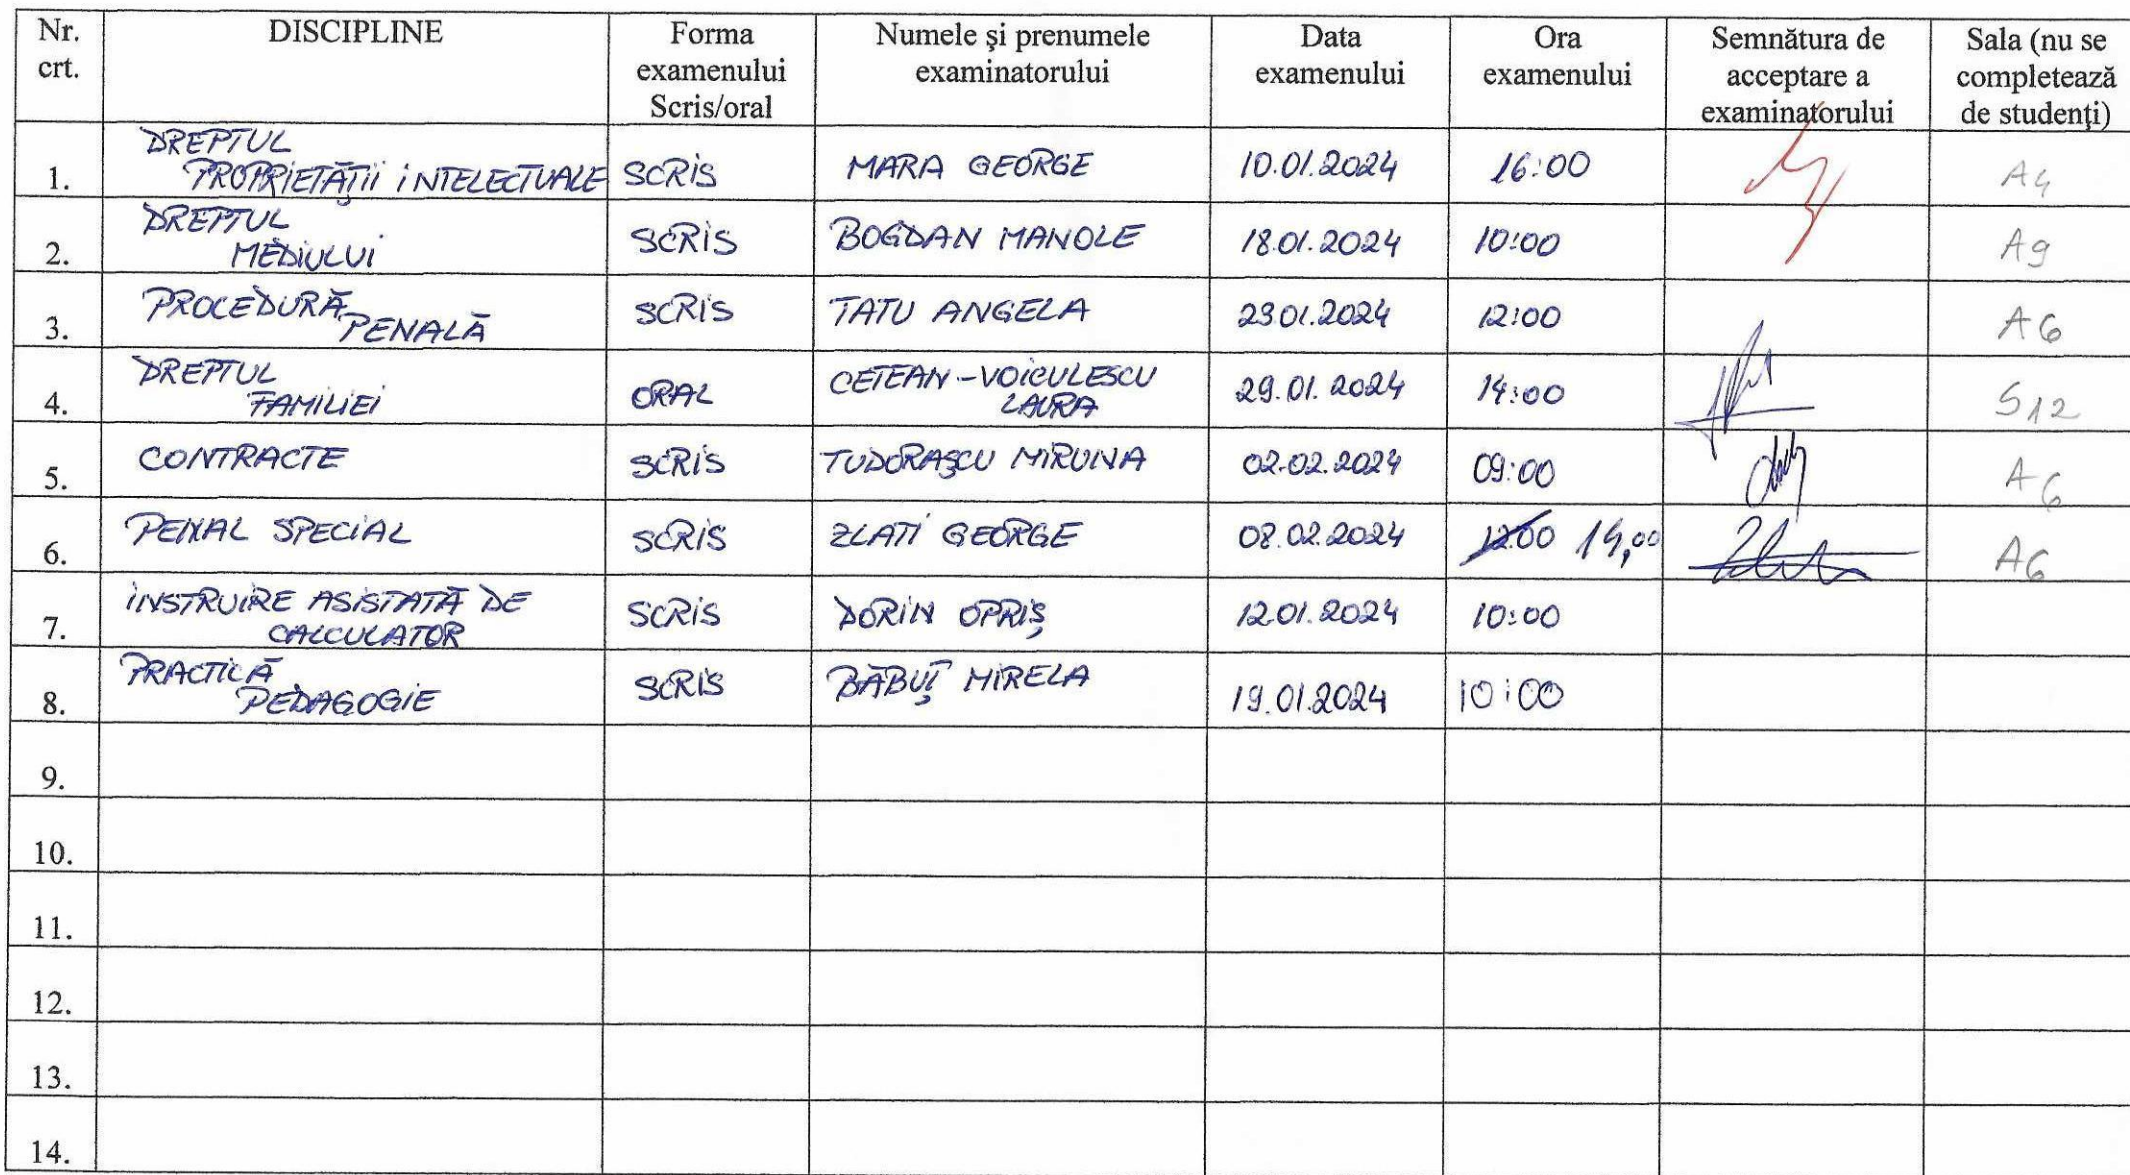 Nr. crt. DISCIPLINE Forma examenului Scris/oral Numele şi prenumele examinatorului Data examenului Ora examenului Semnătura de acceptare a examinatorului Sala (nu se completează de studenţi)
1. DREPTUL PROPRIETĂȚII INTELECTUALE SCRIS MARA GEORGE 10.01.2024 16:00 A4
2. DREPTUL MEDIULUI SCRIS BOGDAN MANOLE 18.01.2024 10:00 A9
3. PROCEDURĂ PENALĂ SCRIS TATU ANGELA 23.01.2024 12:00 A6
4. DREPTUL FAMILIEI ORAL CETEAN-VOICULESCU LAURA 29.01.2024 14:00 S12
5. CONTRACTE SCRIS TUDORAȘCU MIRUNA 02.02.2024 09:00 A6
6. PENAL SPECIAL SCRIS ZLATI GEORGE 08.02.2024 12:00 14,00 A6
7. INSTRUIRE ASISTATĂ DE CALCULATOR SCRIS DORIN OPRIȘ 12.01.2024 10:00
8. PRACTICĂ PEDAGOGIE SCRIS BĂBUȚ MIRELA 19.01.2024 10:00
9.
10.
11.
12.
13.
14.